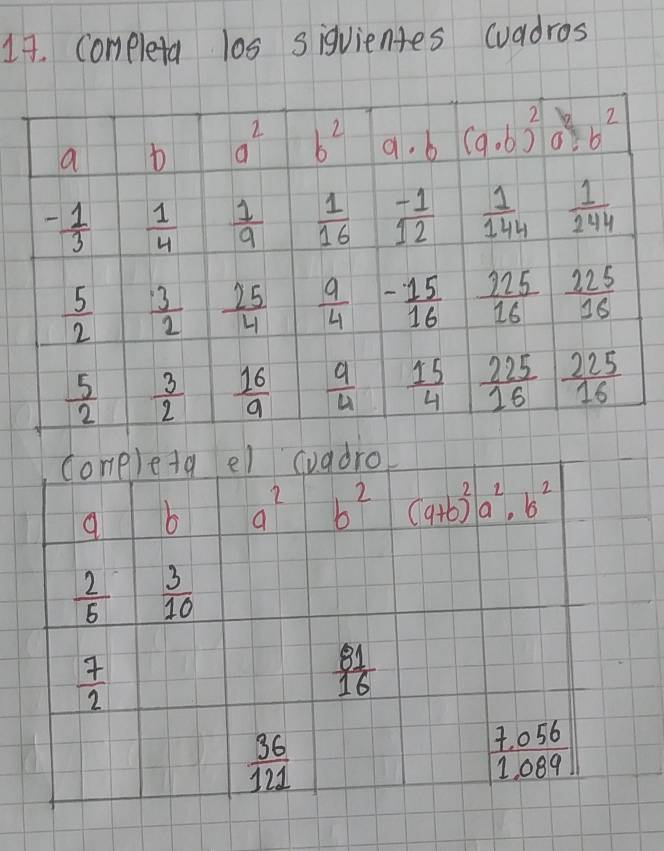 17. completa los siguientes cuadros
a b a² b² a.b (a.b)² a².b²
-1/3 1/4 1/9 1/16 -1/12 1/144 1/244
5/2 3/2 25/4 9/4 -15/16 225/16 225/16
5/2 3/2 16/9 9/4 15/4 225/16 225/16
completa el cuadro
a b a² b² (a+b)² a².b²
2/5 3/10
7/2 81/16
36/121 7.056/1.089